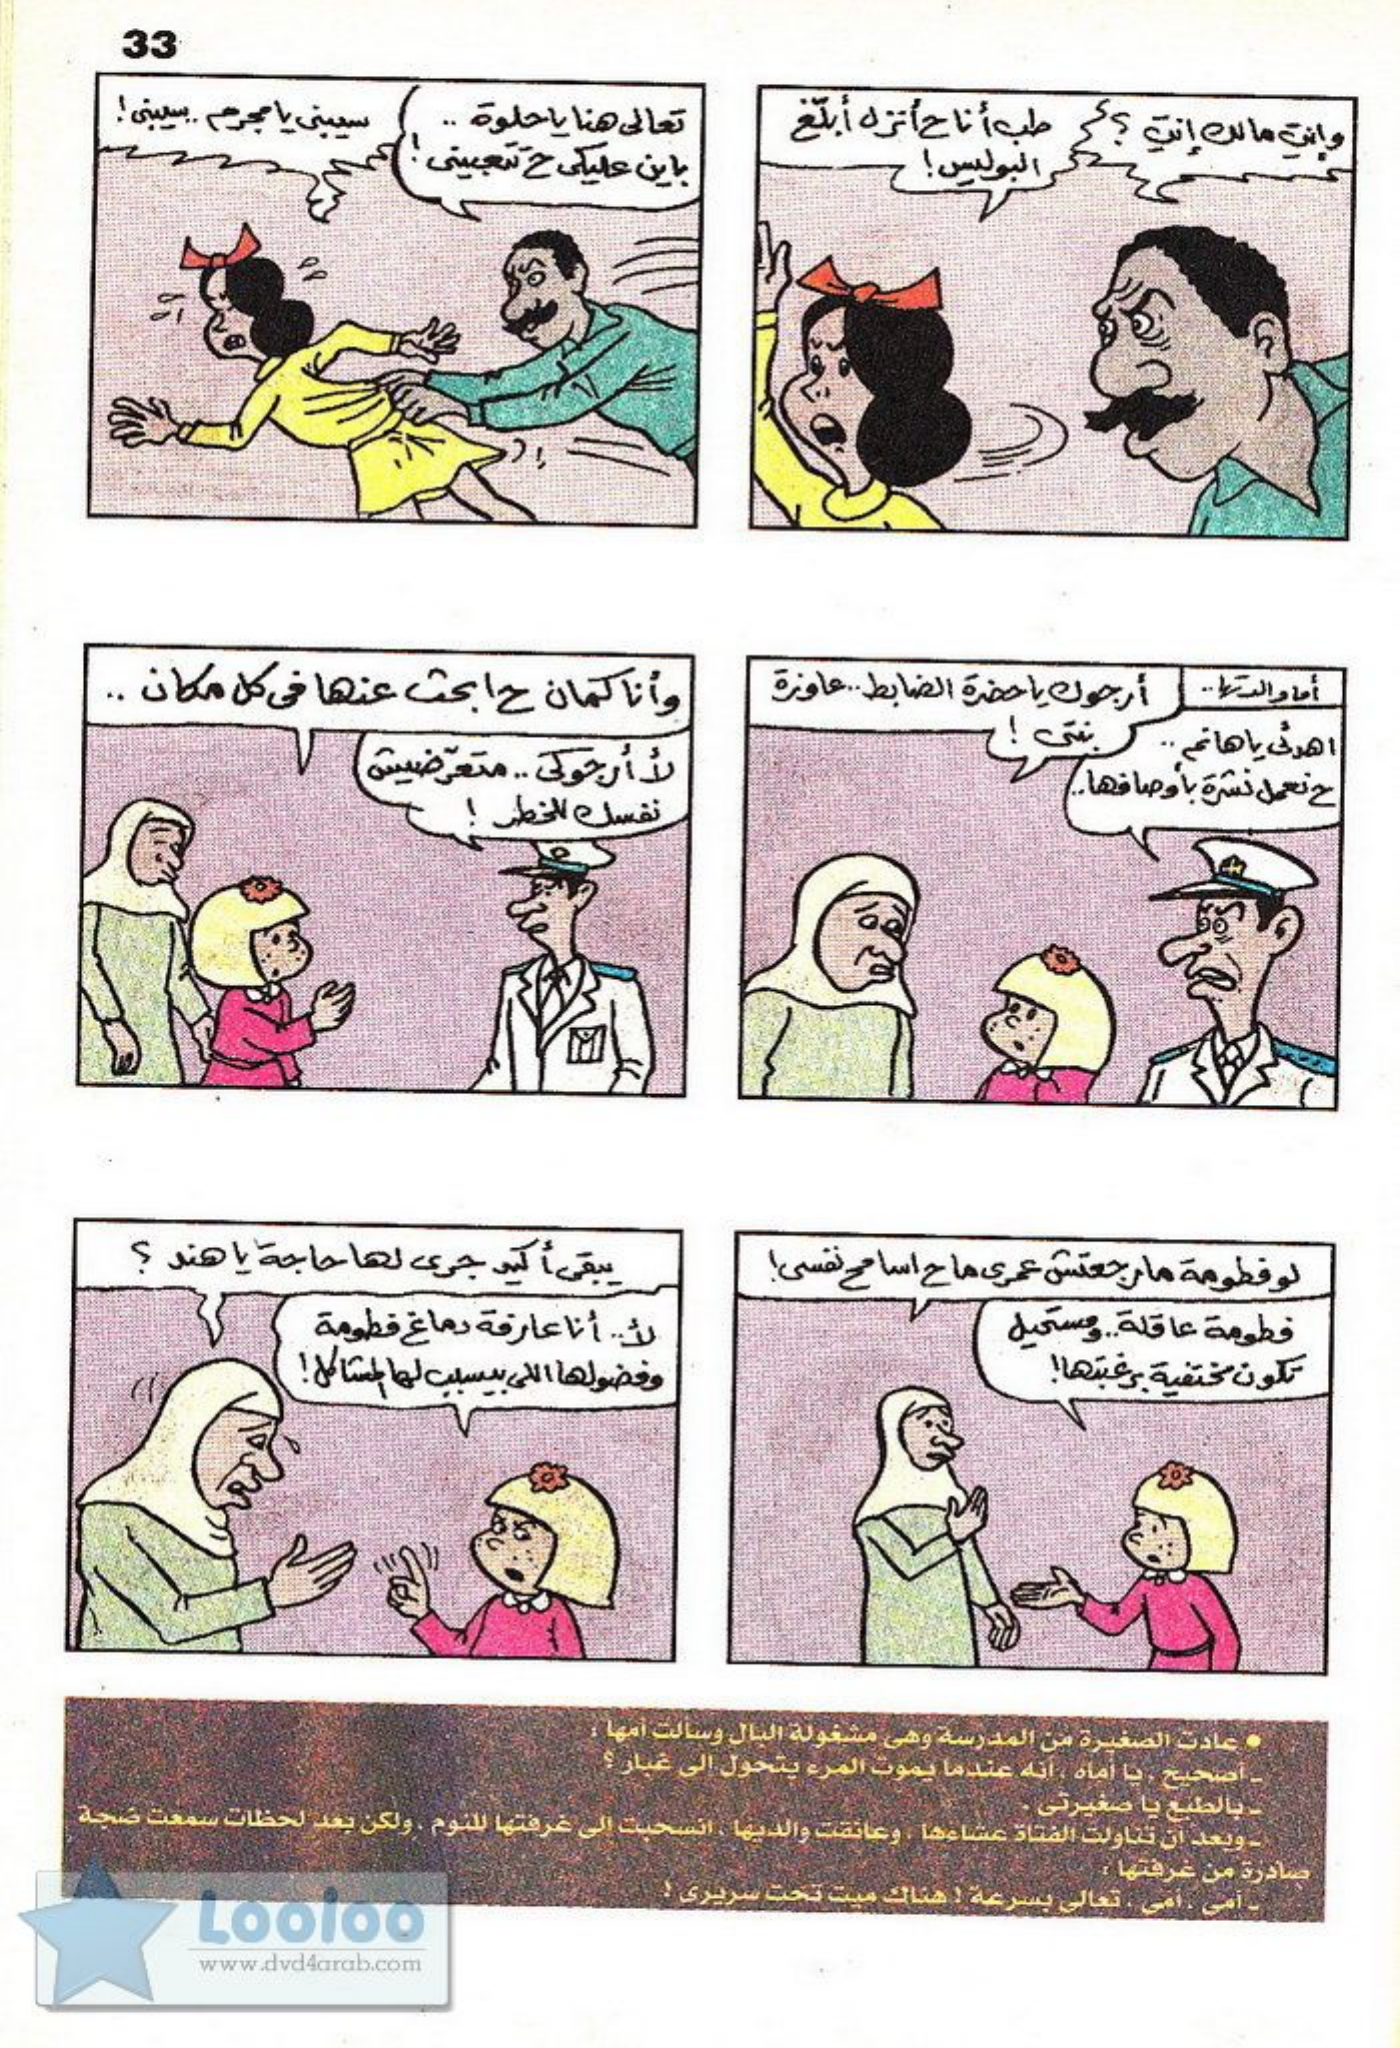 33
وإنتِ مالك إنتِ ؟
طب أنا ح أنزل أبلّغ
البوليس !
تعالى هنا يا حلوة ..
باين عليكى ح تتعبينى !
سيبنى يا مجرم .. سيبنى !
أما والدتها ..
أرجوك يا حضرة الضابط .. عاوزة
بنتى !
اهدئى يا هانم ..
ح نعمل نشرة بأوصافها ..
وأنا كمان ح ابحث عنها فى كل مكان ..
لأ أرجوكى .. متعرّضيش
نفسك للخطر !
لو فطومة مارجعتش عمرى ما ح اسامح نفسى !
فطومة عاقلة .. ومستحيل
تكون مختفية برغبتها !
يبقى أكيد جرى لها حاجة يا هند ؟
لأ .. أنا عارفة دماغ فطومة
وفضولها اللى بيسبب لها المشاكل !
• عادت الصغيرة من المدرسة وهى مشغولة البال وسالت أمها :
ـ أصحيح ، يا أماه ، أنه عندما يموت المرء يتحول الى غبار ؟
ـ بالطبع يا صغيرتى .
ـ وبعد أن تناولت الفتاة عشاءها ، وعانقت والديها ، انسحبت الى غرفتها للنوم ، ولكن بعد لحظات سمعت ضجة
صادرة من غرفتها :
ـ أمى ، أمى ، تعالى بسرعة ! هناك ميت تحت سريرى !
Looloo
www.dvd4arab.com